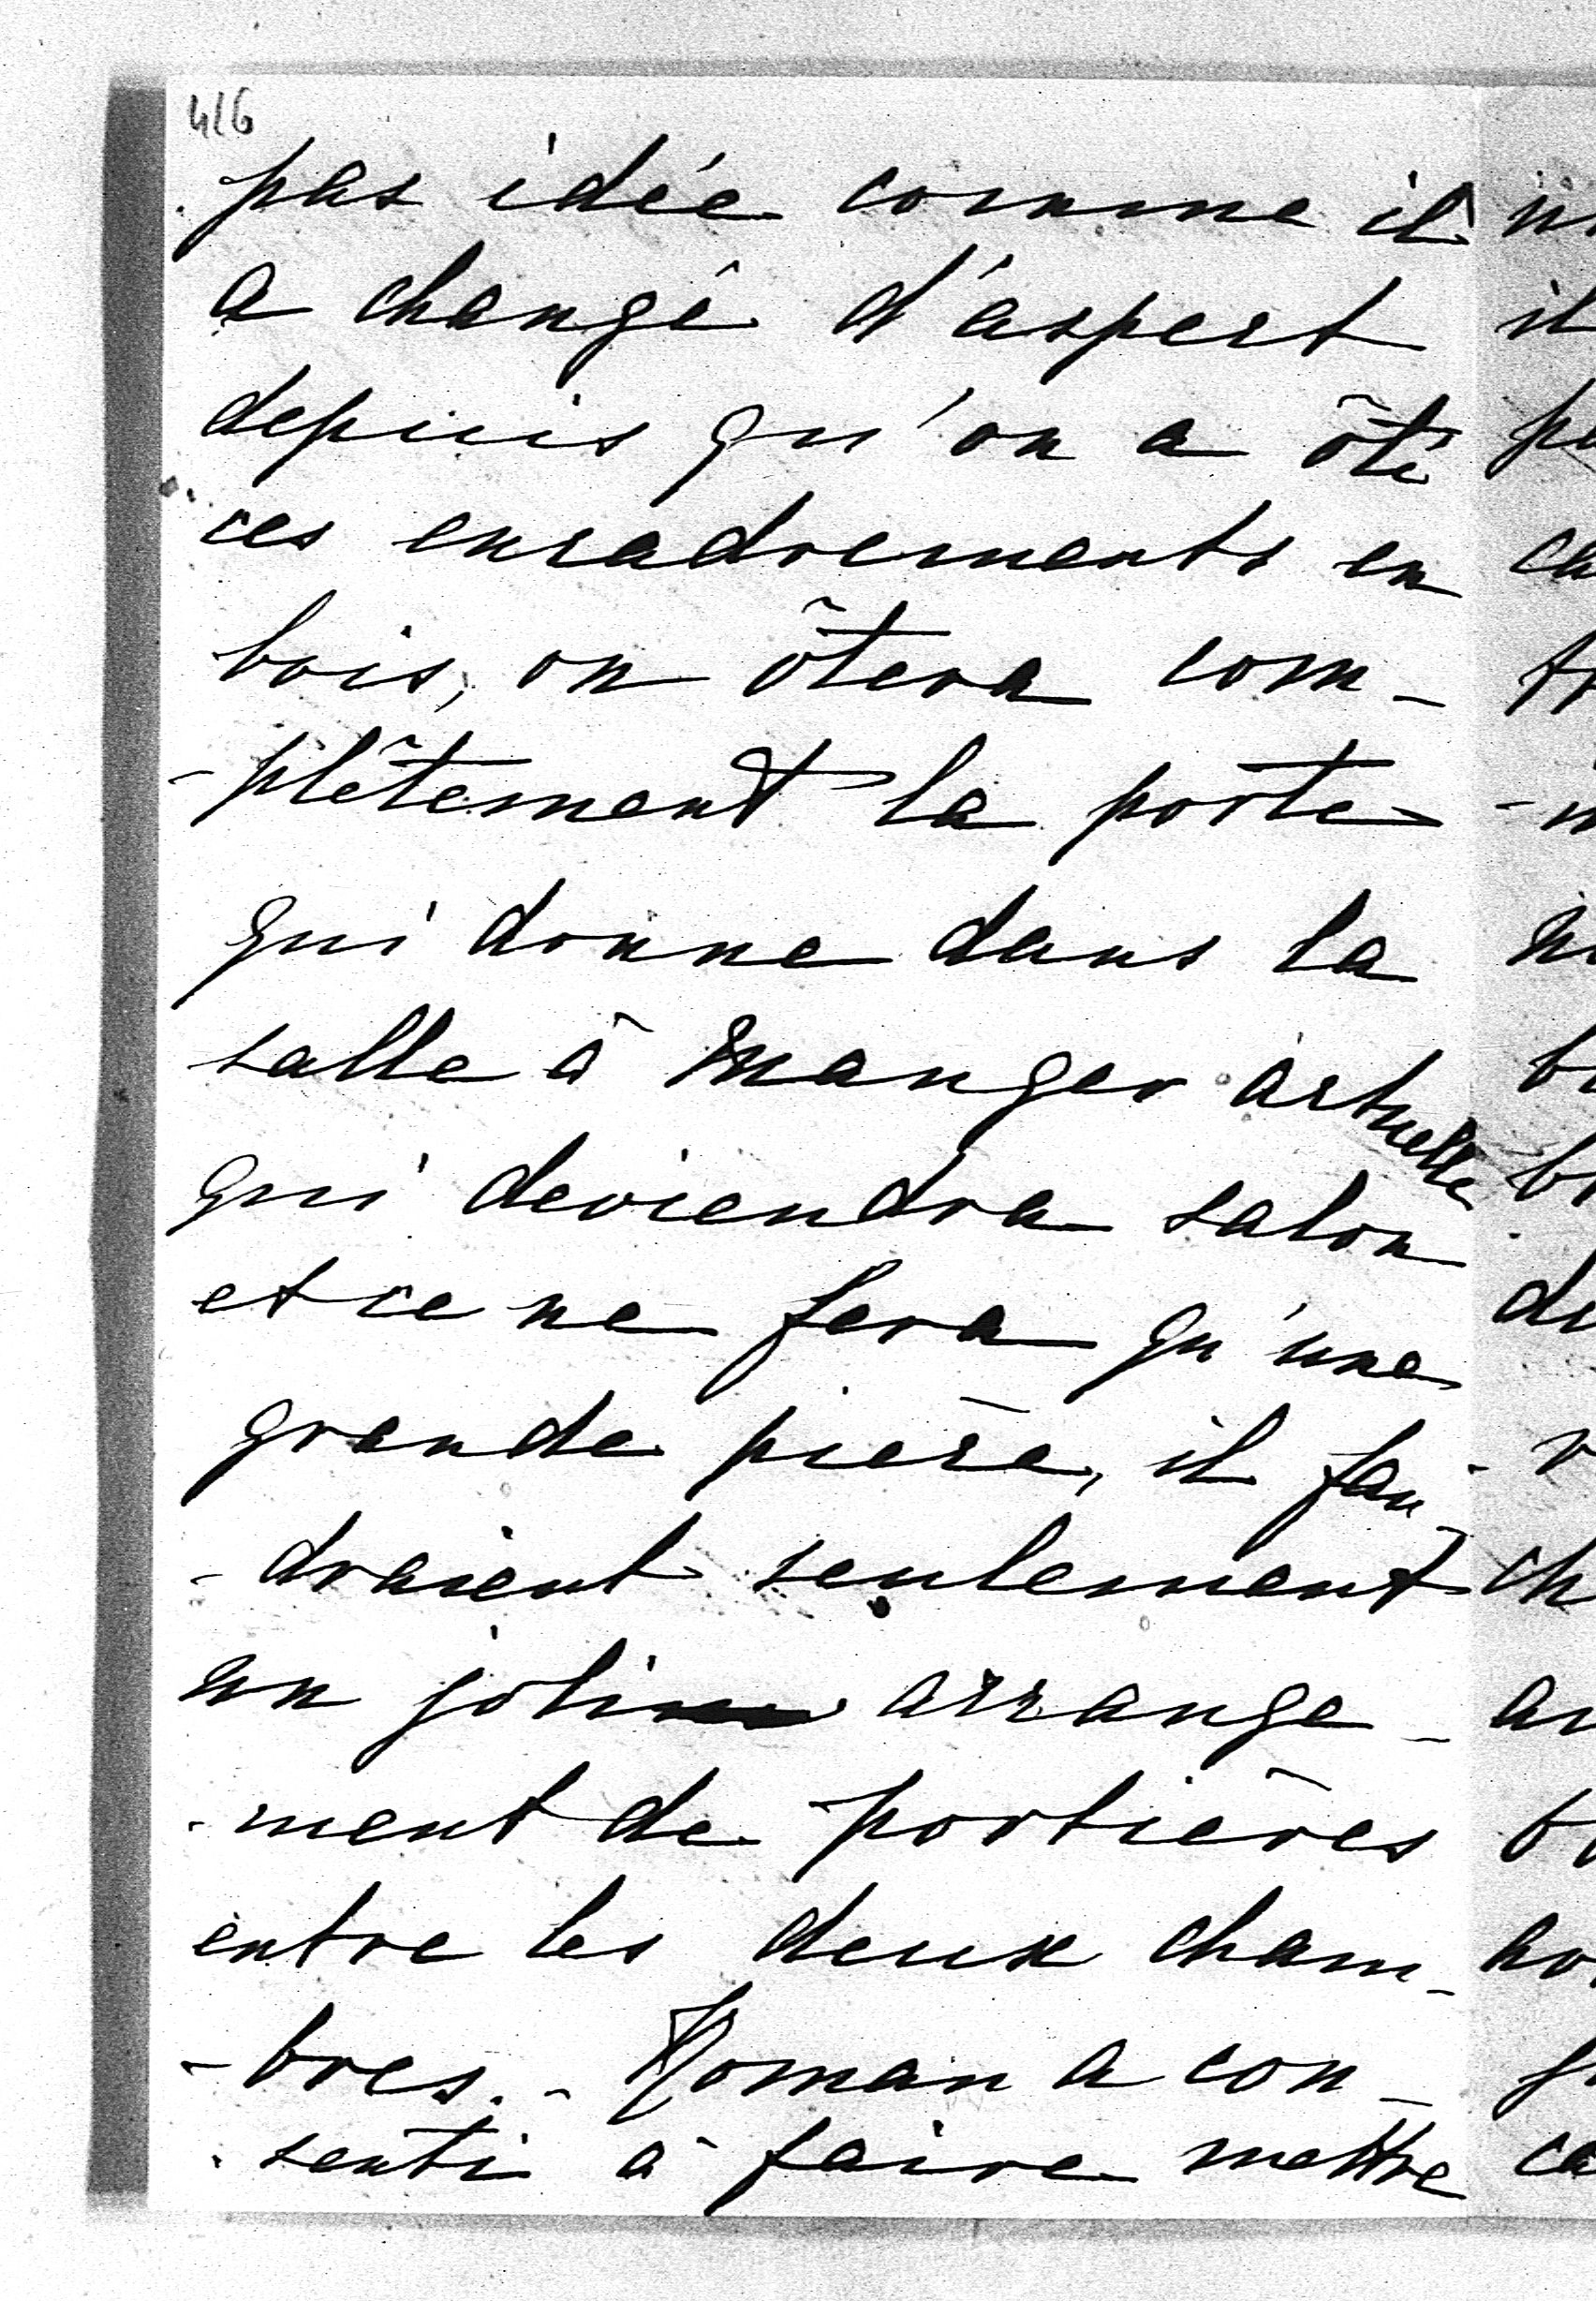 416
pas idée comme il
a changé d'aspect
depuis qu'on a ôté
ces encadrements en
bois, on ôtera com-
-plêtement la porte
qui donne dans la
salle à manger actuelle
qui deviendra salon
et ce ne fera qu'une
grande pièce, il fau-
-draient seulement
un joli arrange-
-ment de portières
entre les deux cham-
-bres. - Roman a con-
-senti à faire mettre